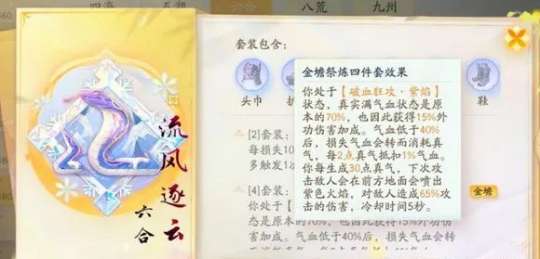 四海
五岳
六合
八荒
九州
套装包含:
头巾
鞋
流风逐云
六合
[2]套装:
每损失10
多触发1
[4]套装:
你处于
态是原本的70%,也因此获得15%外功伤
加成。气血低于40%后,损失气血会转而
金缮
金缮祭炼四件套效果
你处于【破血狂攻·紫焰】
状态,真实满气血状态是原
本的70%,也因此获得15%外
功伤害加成。气血低于40%
后,损失气血会转而消耗真
气,每2点真气抵扣1%气血。
你每生成30点真气,下次攻
击敌人会在前方地面会喷出
紫色火焰,对敌人造成65%攻
击的伤害,冷却时间5秒。